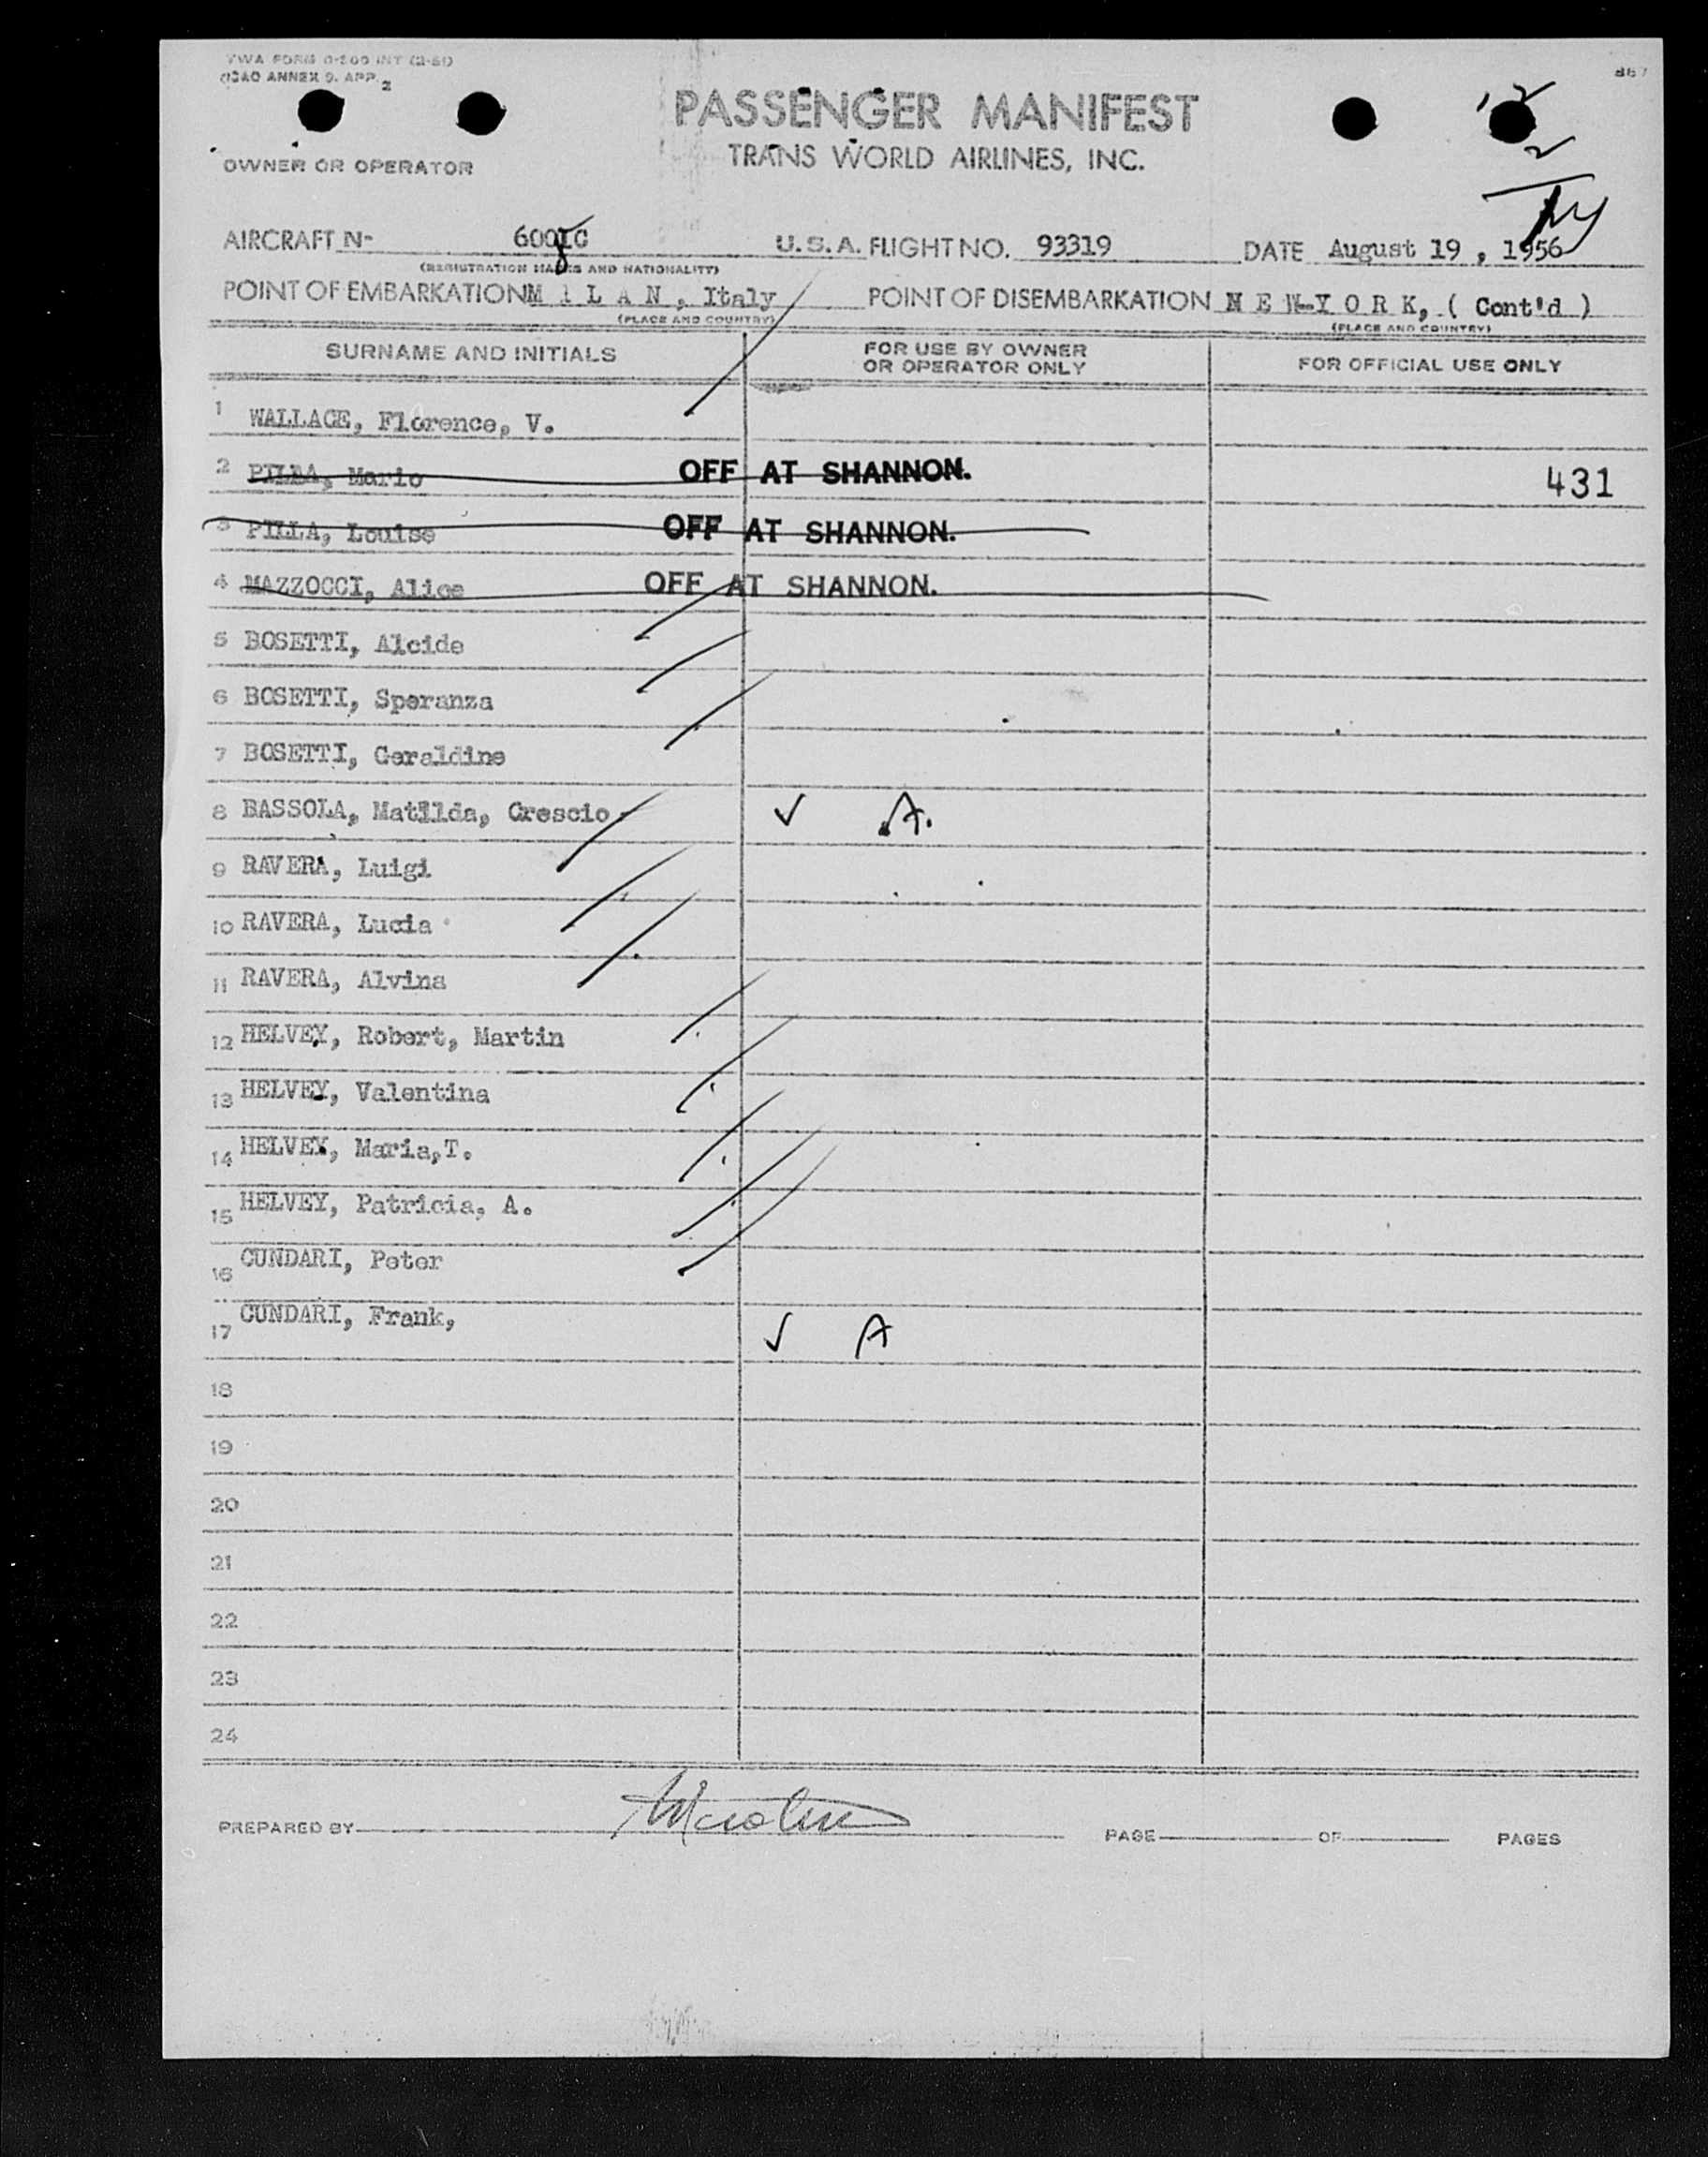 TWA FORM 0-200 INT (2-51)
(ICAO ANNEX 9. APP. 2
867
PASSENGER MANIFEST
TRANS WORLD AIRLINES, INC.
OWNER OR OPERATOR
2
AIRCRAFT N- U.S.A. FLIGHT NO. 93319 DATE August 19, 1956
(REGISTRATION MARKS AND NATIONALITY)
POINT OF EMBARKATION M I L A N, Italy POINT OF DISEMBARKATION N E W-Y O R K, ( Cont'd )
(PLACE AND COUNTRY) (PLACE AND COUNTRY)
SURNAME AND INITIALS FOR USE BY OWNER OR OPERATOR ONLY FOR OFFICIAL USE ONLY
1 WALLACE, Florence, V.
2 PILLA, Mario OFF AT SHANNON. 431
3 PILLA, Louise OFF AT SHANNON.
4 MAZZOCCI, Alice OFF AT SHANNON.
5 BOSETTI, Alcide
6 BOSETTI, Speranza
7 BOSETTI, Geraldine
8 BASSOLA, Matilda, Crescio ✓ A.
9 RAVERA, Luigi
10 RAVERA, Lucia
11 RAVERA, Alvina
12 HELVEY, Robert, Martin
13 HELVEY, Valentina
14 HELVEY, Maria,T.
15 HELVEY, Patricia, A.
16 CUNDARI, Peter
17 CUNDARI, Frank, ✓ A
18
19
20
21
22
23
24
PREPARED BY PAGE OF PAGES